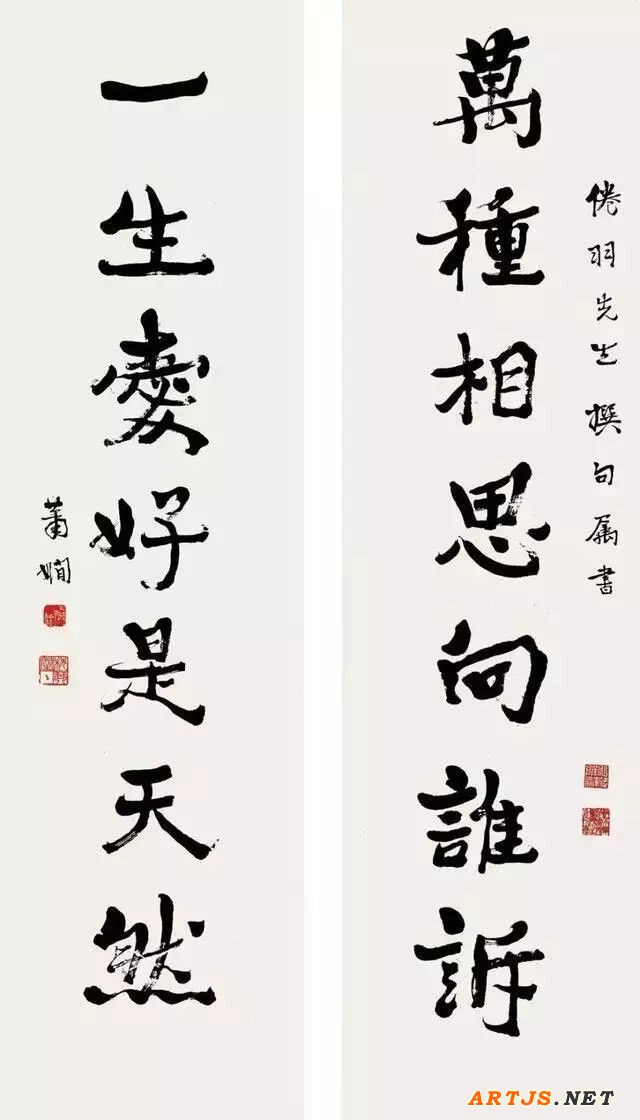 倦羽先生撰句属書
萬種相思向誰訴
一生愛好是天然
蕭嫻
ARTJS.NET